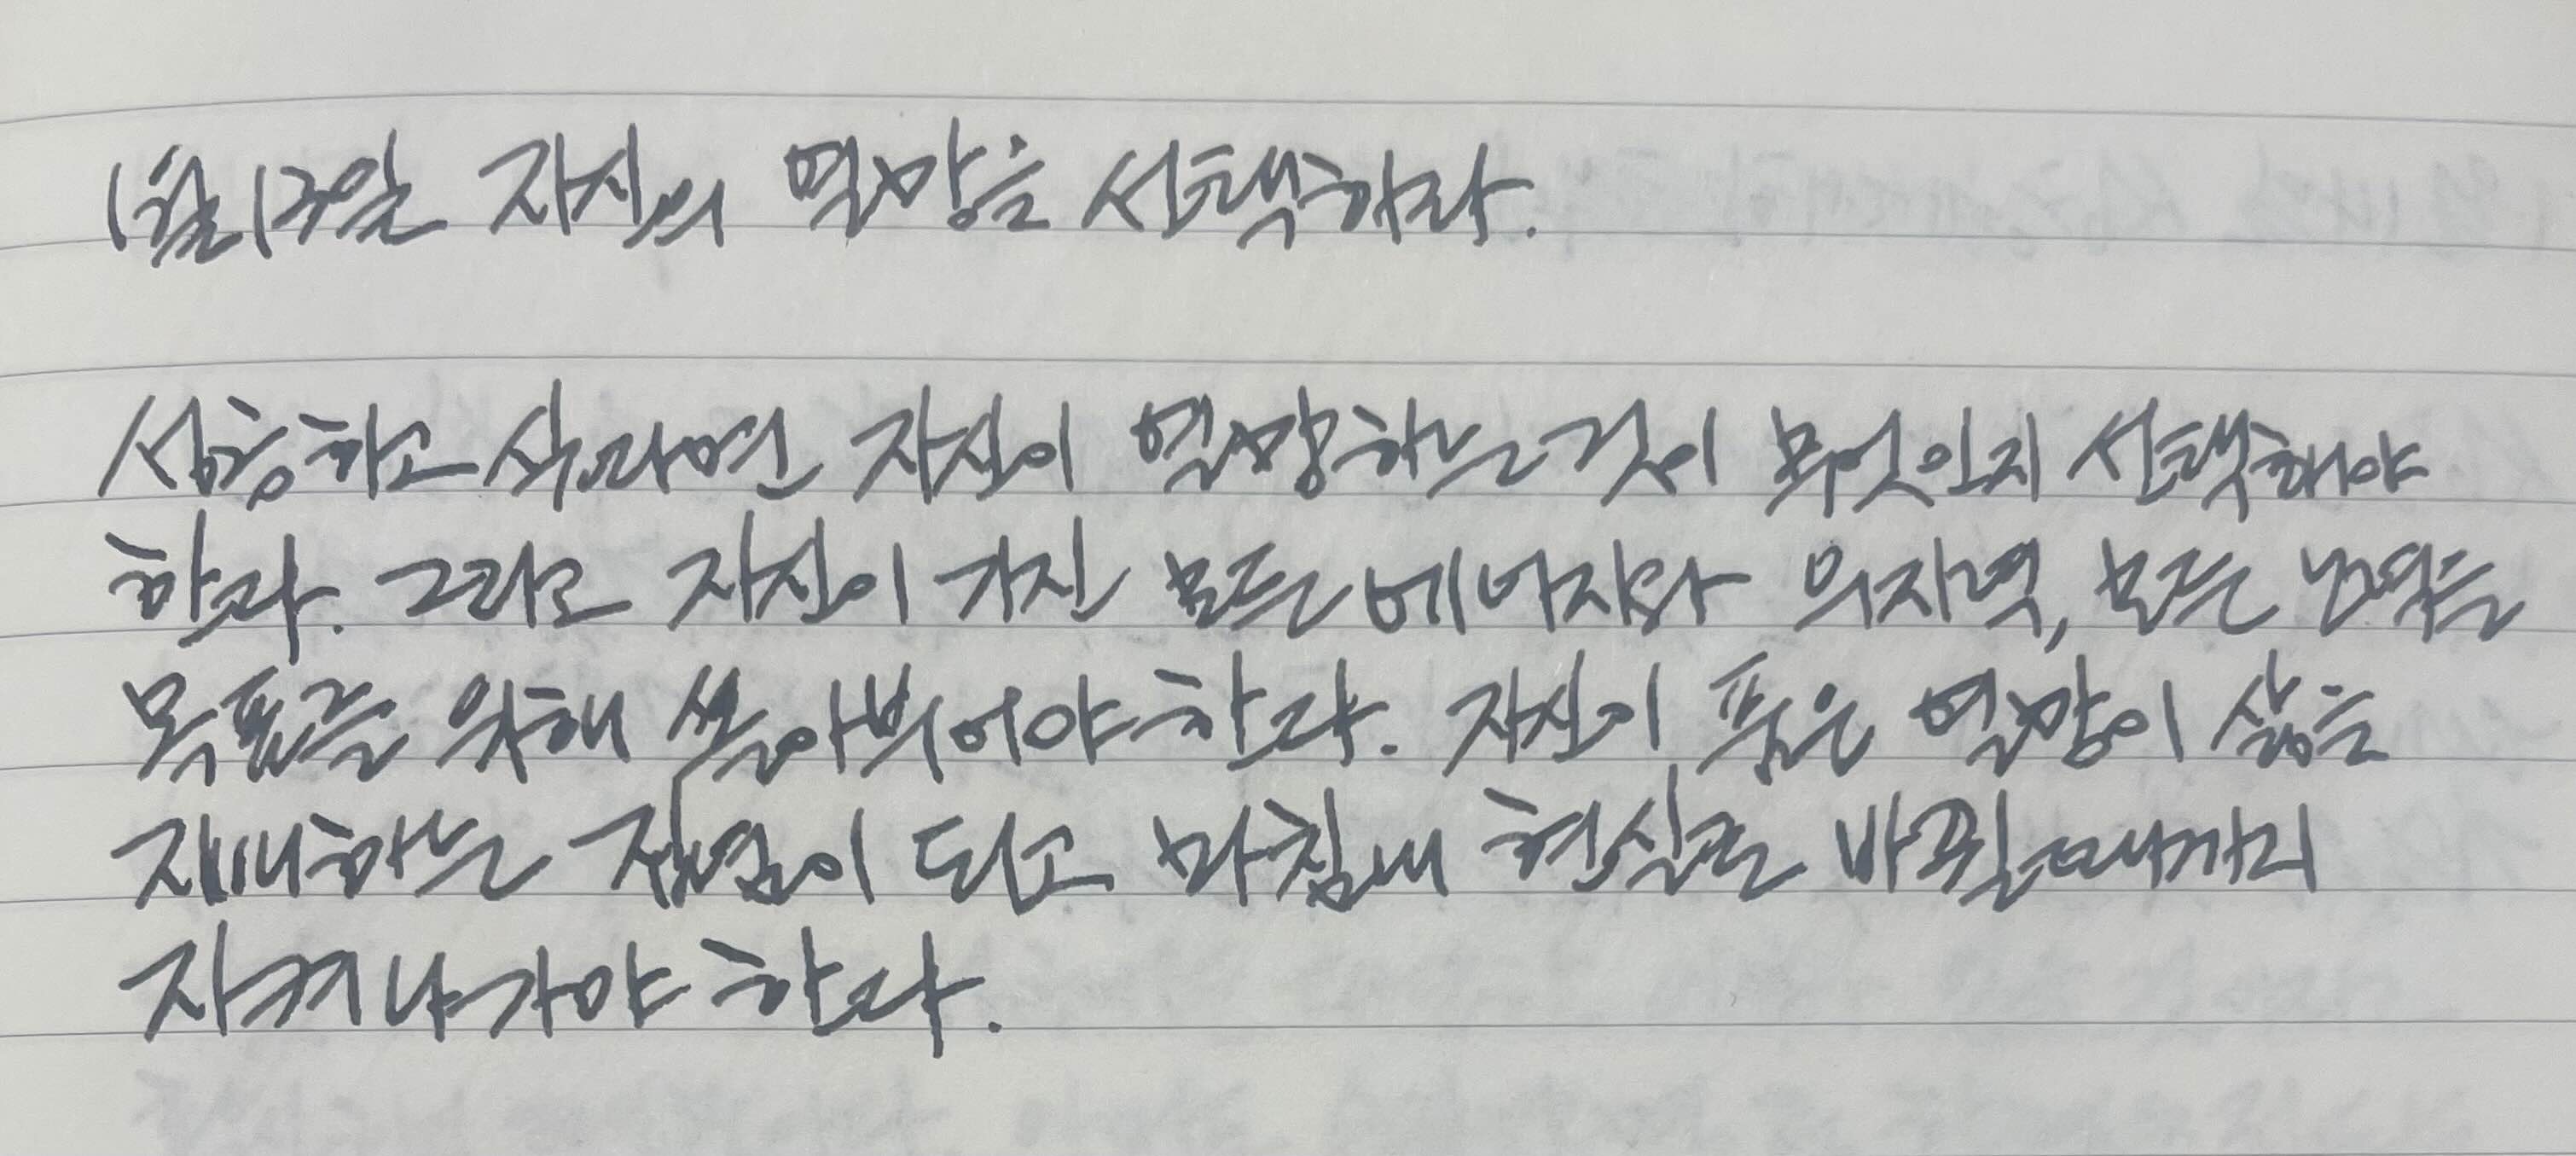 1월 13일 자신의 열망을 선택하라.
성공하고 싶다면 자신이 열망하는 것이 무엇인지 선택해야
한다. 그리고 자신이 가진 모든 에너지와 의지력, 모든 노력을
목표를 위해 쏟아부어야 한다. 자신이 품은 열망이 삶을
지배하는 집념이 되고 마침내 현실로 바뀔때까지
지켜나가야 한다.